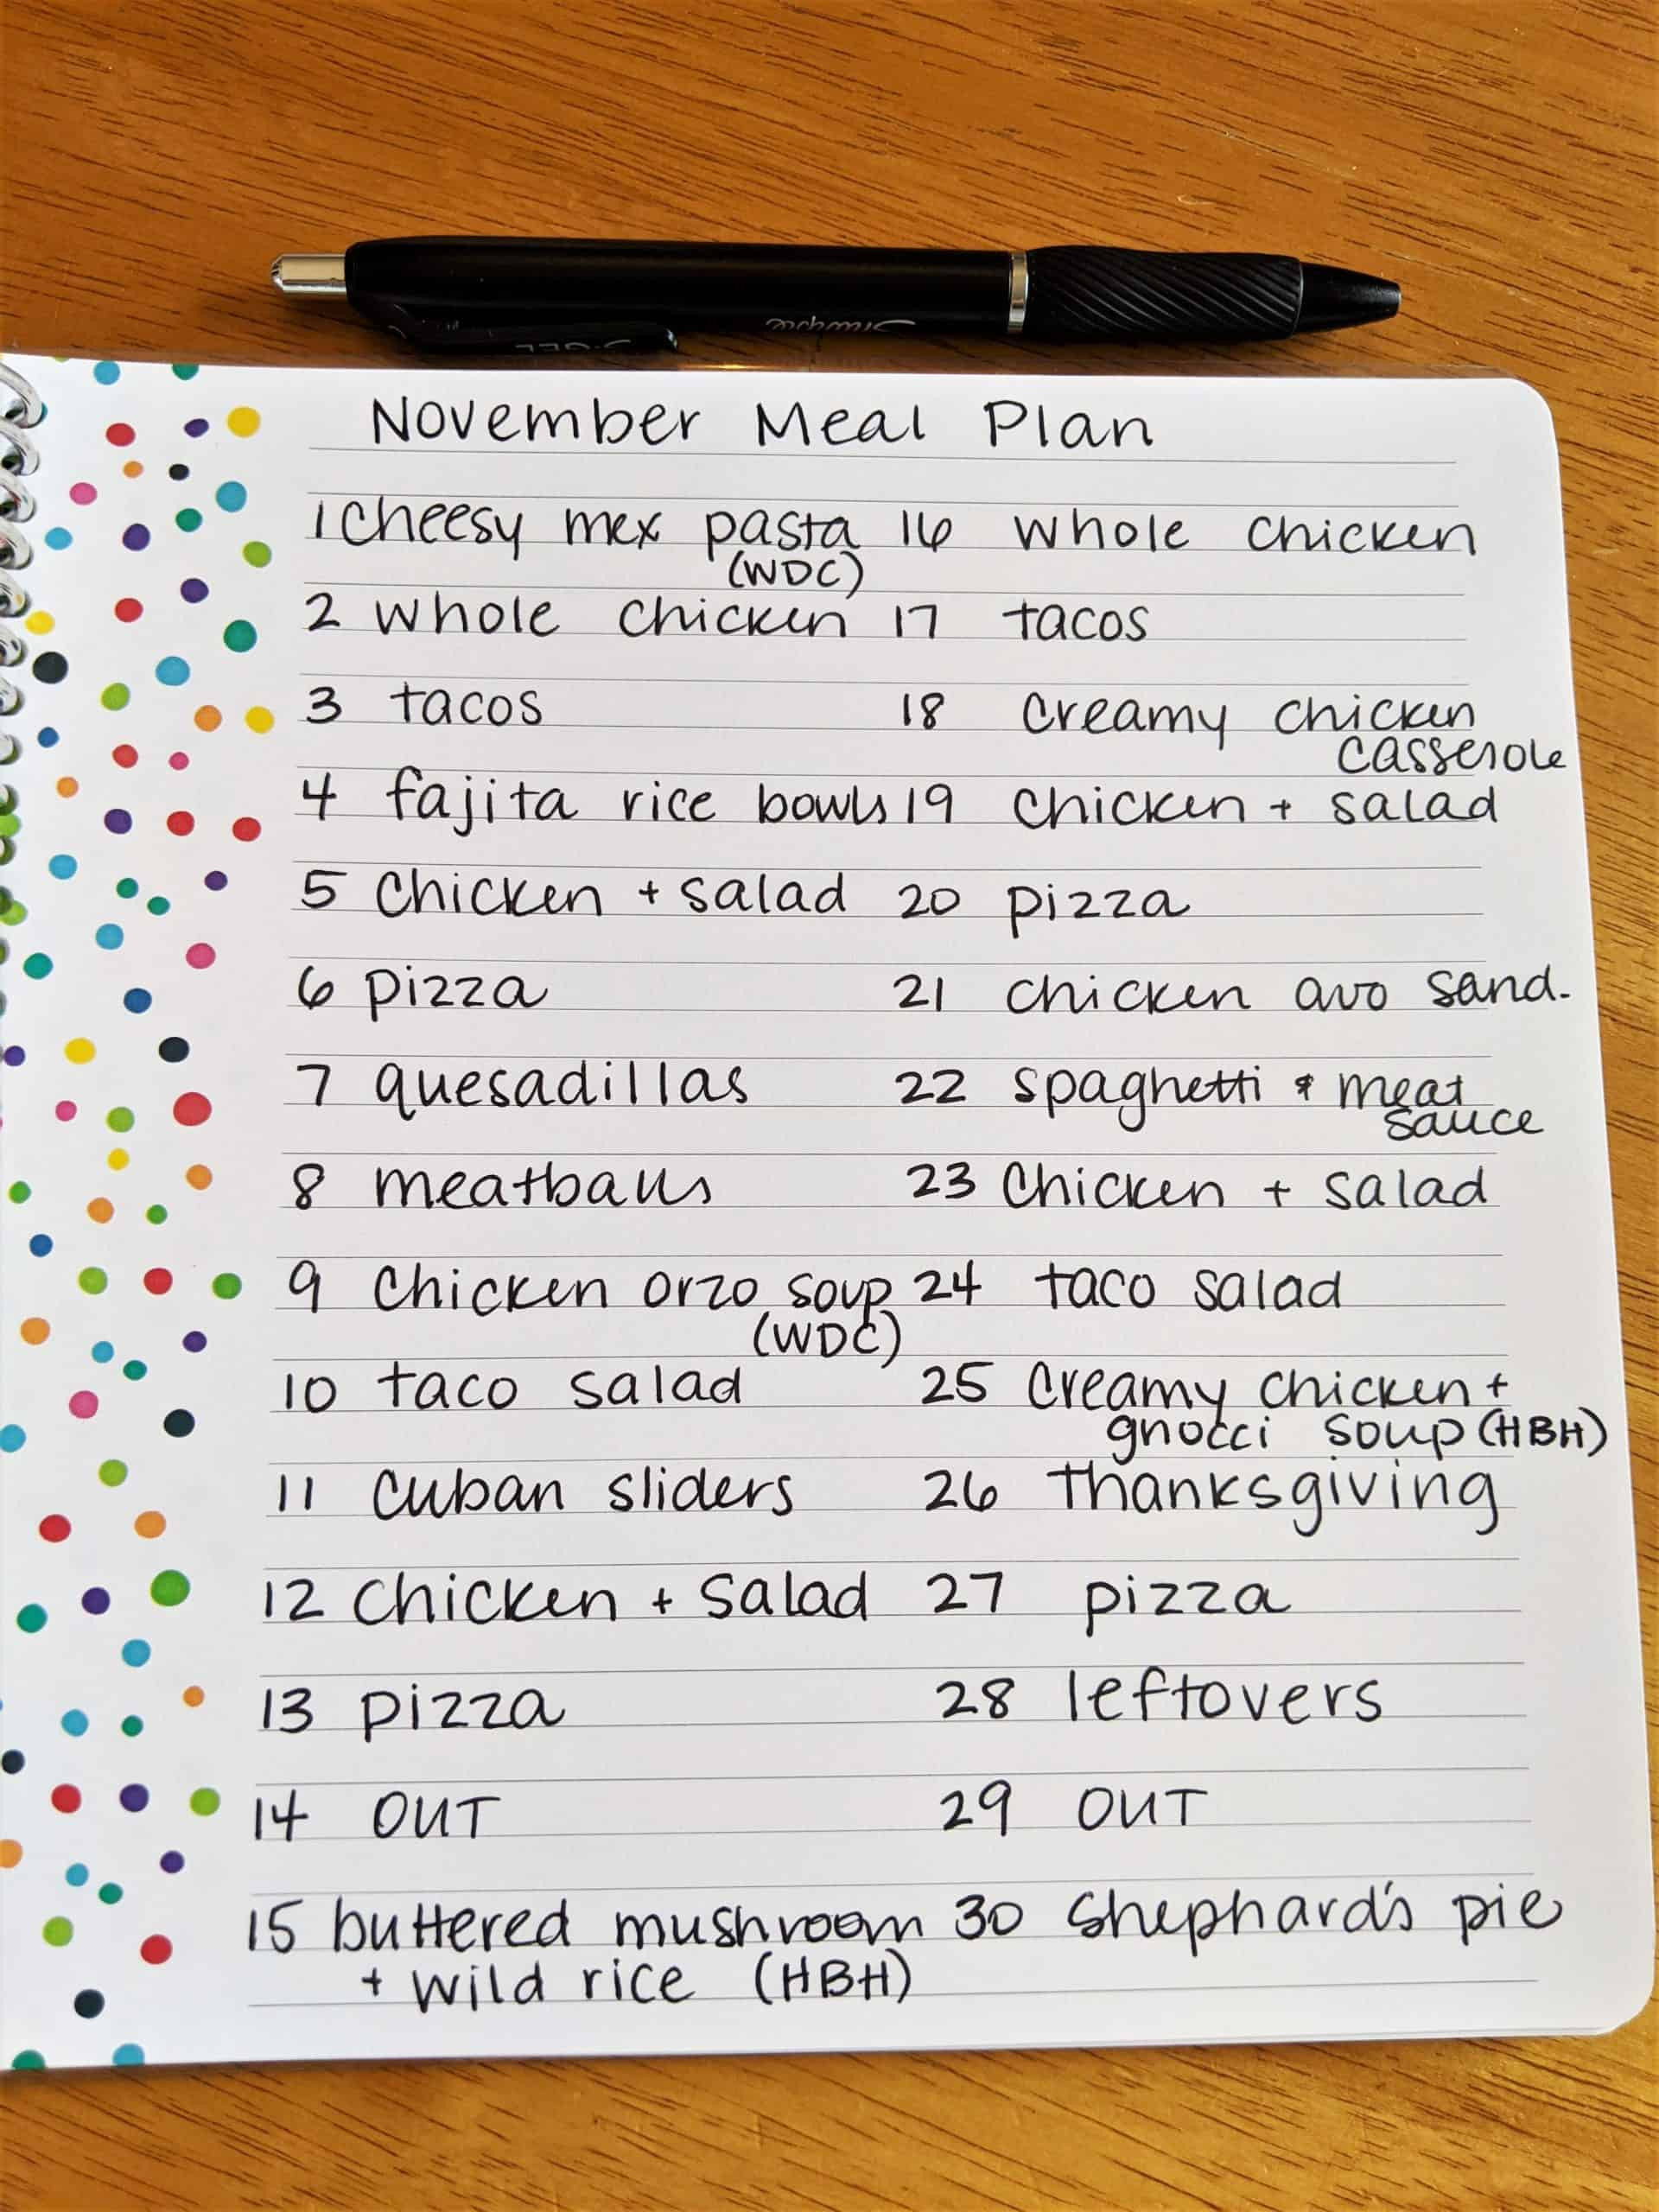 Sharpie
S·GEL
November Meal Plan
1 cheesy mex pasta
(WDC)
2 whole chicken
3 tacos
4 fajita rice bowls
5 chicken + salad
6 pizza
7 quesadillas
8 meatballs
9 chicken orzo soup
(WDC)
10 taco salad
11 cuban sliders
12 chicken + salad
13 pizza
14 OUT
15 buttered mushroom
+ wild rice (HBH)
16 whole chicken
17 tacos
18 creamy chicken
casserole
19 chicken + salad
20 pizza
21 chicken avo sand.
22 spaghetti & meat
sauce
23 chicken + salad
24 taco salad
25 creamy chicken +
gnocci soup (HBH)
26 Thanksgiving
27 pizza
28 leftovers
29 OUT
30 shephard's pie